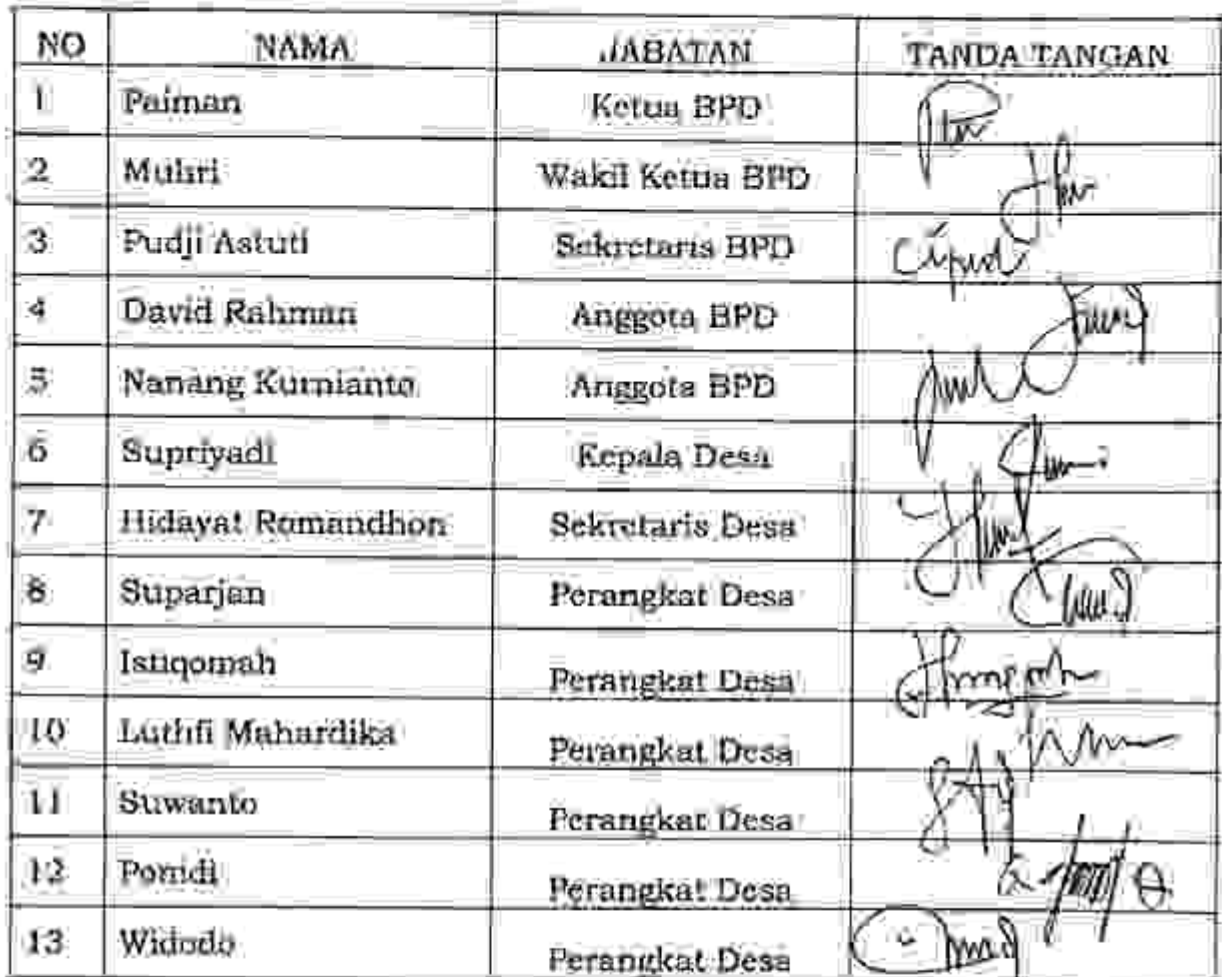 NO NAMA JABATAN TANDA TANGAN
1 Paiman Ketua BPD
2 Muhri Wakil Ketua BPD
3 Pudji Astuti Sekretaris BPD
4 David Rahman Anggota BPD
5 Nanang Kurnianto Anggota BPD
6 Supriyadi Kepala Desa
7 Hidayat Romandhon Sekretaris Desa
8 Suparjan Perangkat Desa
9 Istiqomah Perangkat Desa
10 Luthfi Mahardika Perangkat Desa
11 Suwanto Perangkat Desa
12 Ponidi Perangkat Desa
13 Widodo Perangkat Desa